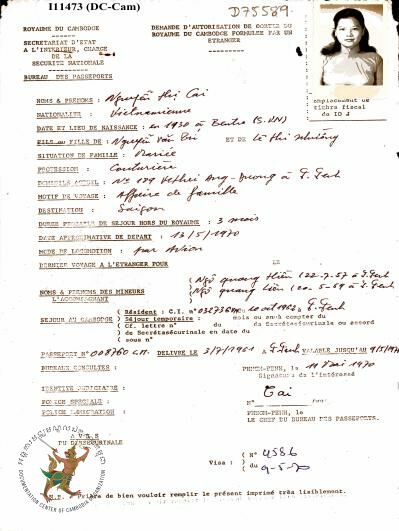 I11473 (DC-Cam)
D75589.
ROYAUME DU CAMBODGE
SECRETARIAT D'ETAT
A L'INTERIEUR, CHARGE
DE LA
SECURITE NATIONALE
BUREAU DES PASSEPORTS
DEMANDE D'AUTORISATION DE SORTIE DU
ROYAUME DU CAMBODGE FORMULEE PAR UN
ETRANGER
timbre fiscal
de 10 J
NOMS & PRENOMS : Nguyễn Thị Cai
NATIONALITE : Vietnamienne
DATE ET LIEU DE NAISSANCE : en 1930 à Bentre (S.VN)
FILS ou FILLE DE : Nguyễn Văn ET DE Lê Thị
SITUATION DE FAMILLE : Mariée
PROFESSION : Couturière
DOMICILE ACTUEL : No 179 Ang-Duong à P. Penh
MOTIF DE VOYAGE : Affaire de famille
DESTINATION : Saigon
DUREE PROBABLE DE SEJOUR HORS DU ROYAUME : 3 mois
DATE APPROXIMATIVE DE DEPART : 13/5/1970
MODE DE LOCOMOTION : par Avion
DERNIER VOYAGE A L'ETRANGER POUR LE
NOMS & PRENOMS DES MINEURS
L'ACCOMPAGNANT
( Ngô quang Hiền (22-7-57 à P. Penh
( Ngô quang (20-5-59 à P. Penh
SEJOUR AU CAMBODGE
( Résident : C.I. n° 10 oct 1962 P. Penh
( Séjour temporaire : mois ou sans compter du
( Cf. lettre n° du de Secrétasécurinale ou accord
( de Secrétasécurinale en date du
( sous n°
PASSEPORT N° 008760 DELIVRE LE 3/7/1961 A P. Penh VALABLE JUSQU'AU 9/5/197
BUREAUX CONSULTES :
PHNOM-PENH, 11 Mai 1970
Signature de l'intéressé
IDENTITE JUDICIAIRE :
Cai
POLICE SPECIALE :
POLICE IMMIGRATION :
N°
PHNOM-PENH, le
LE CHEF DU BUREAU DES PASSEPORTS.
VISA
DU DIRSECURINALE
Visa : ( N° 4586
( du 9-5-70
DOCUMENTATION CENTER OF CAMBODIA
N.B. Prière de bien vouloir remplir le présent imprimé très lisiblement.